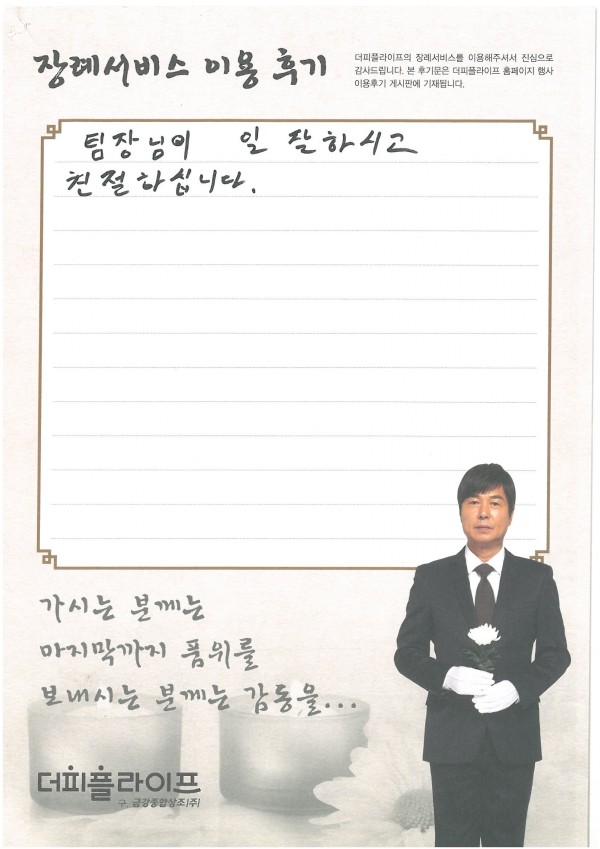 장례서비스 이용 후기
더피플라이프의 장례서비스를 이용해주셔서 진심으로
감사드립니다. 본 후기문은 더피플라이프 홈페이지 행사
이용후기 게시판에 기재됩니다.
팀장님이 일 잘하시고
친절하십니다.
가시는 분께는
마지막까지 품위를
보내시는 분께는 감동을...
더피플라이프
구. 금강종합상조(주)